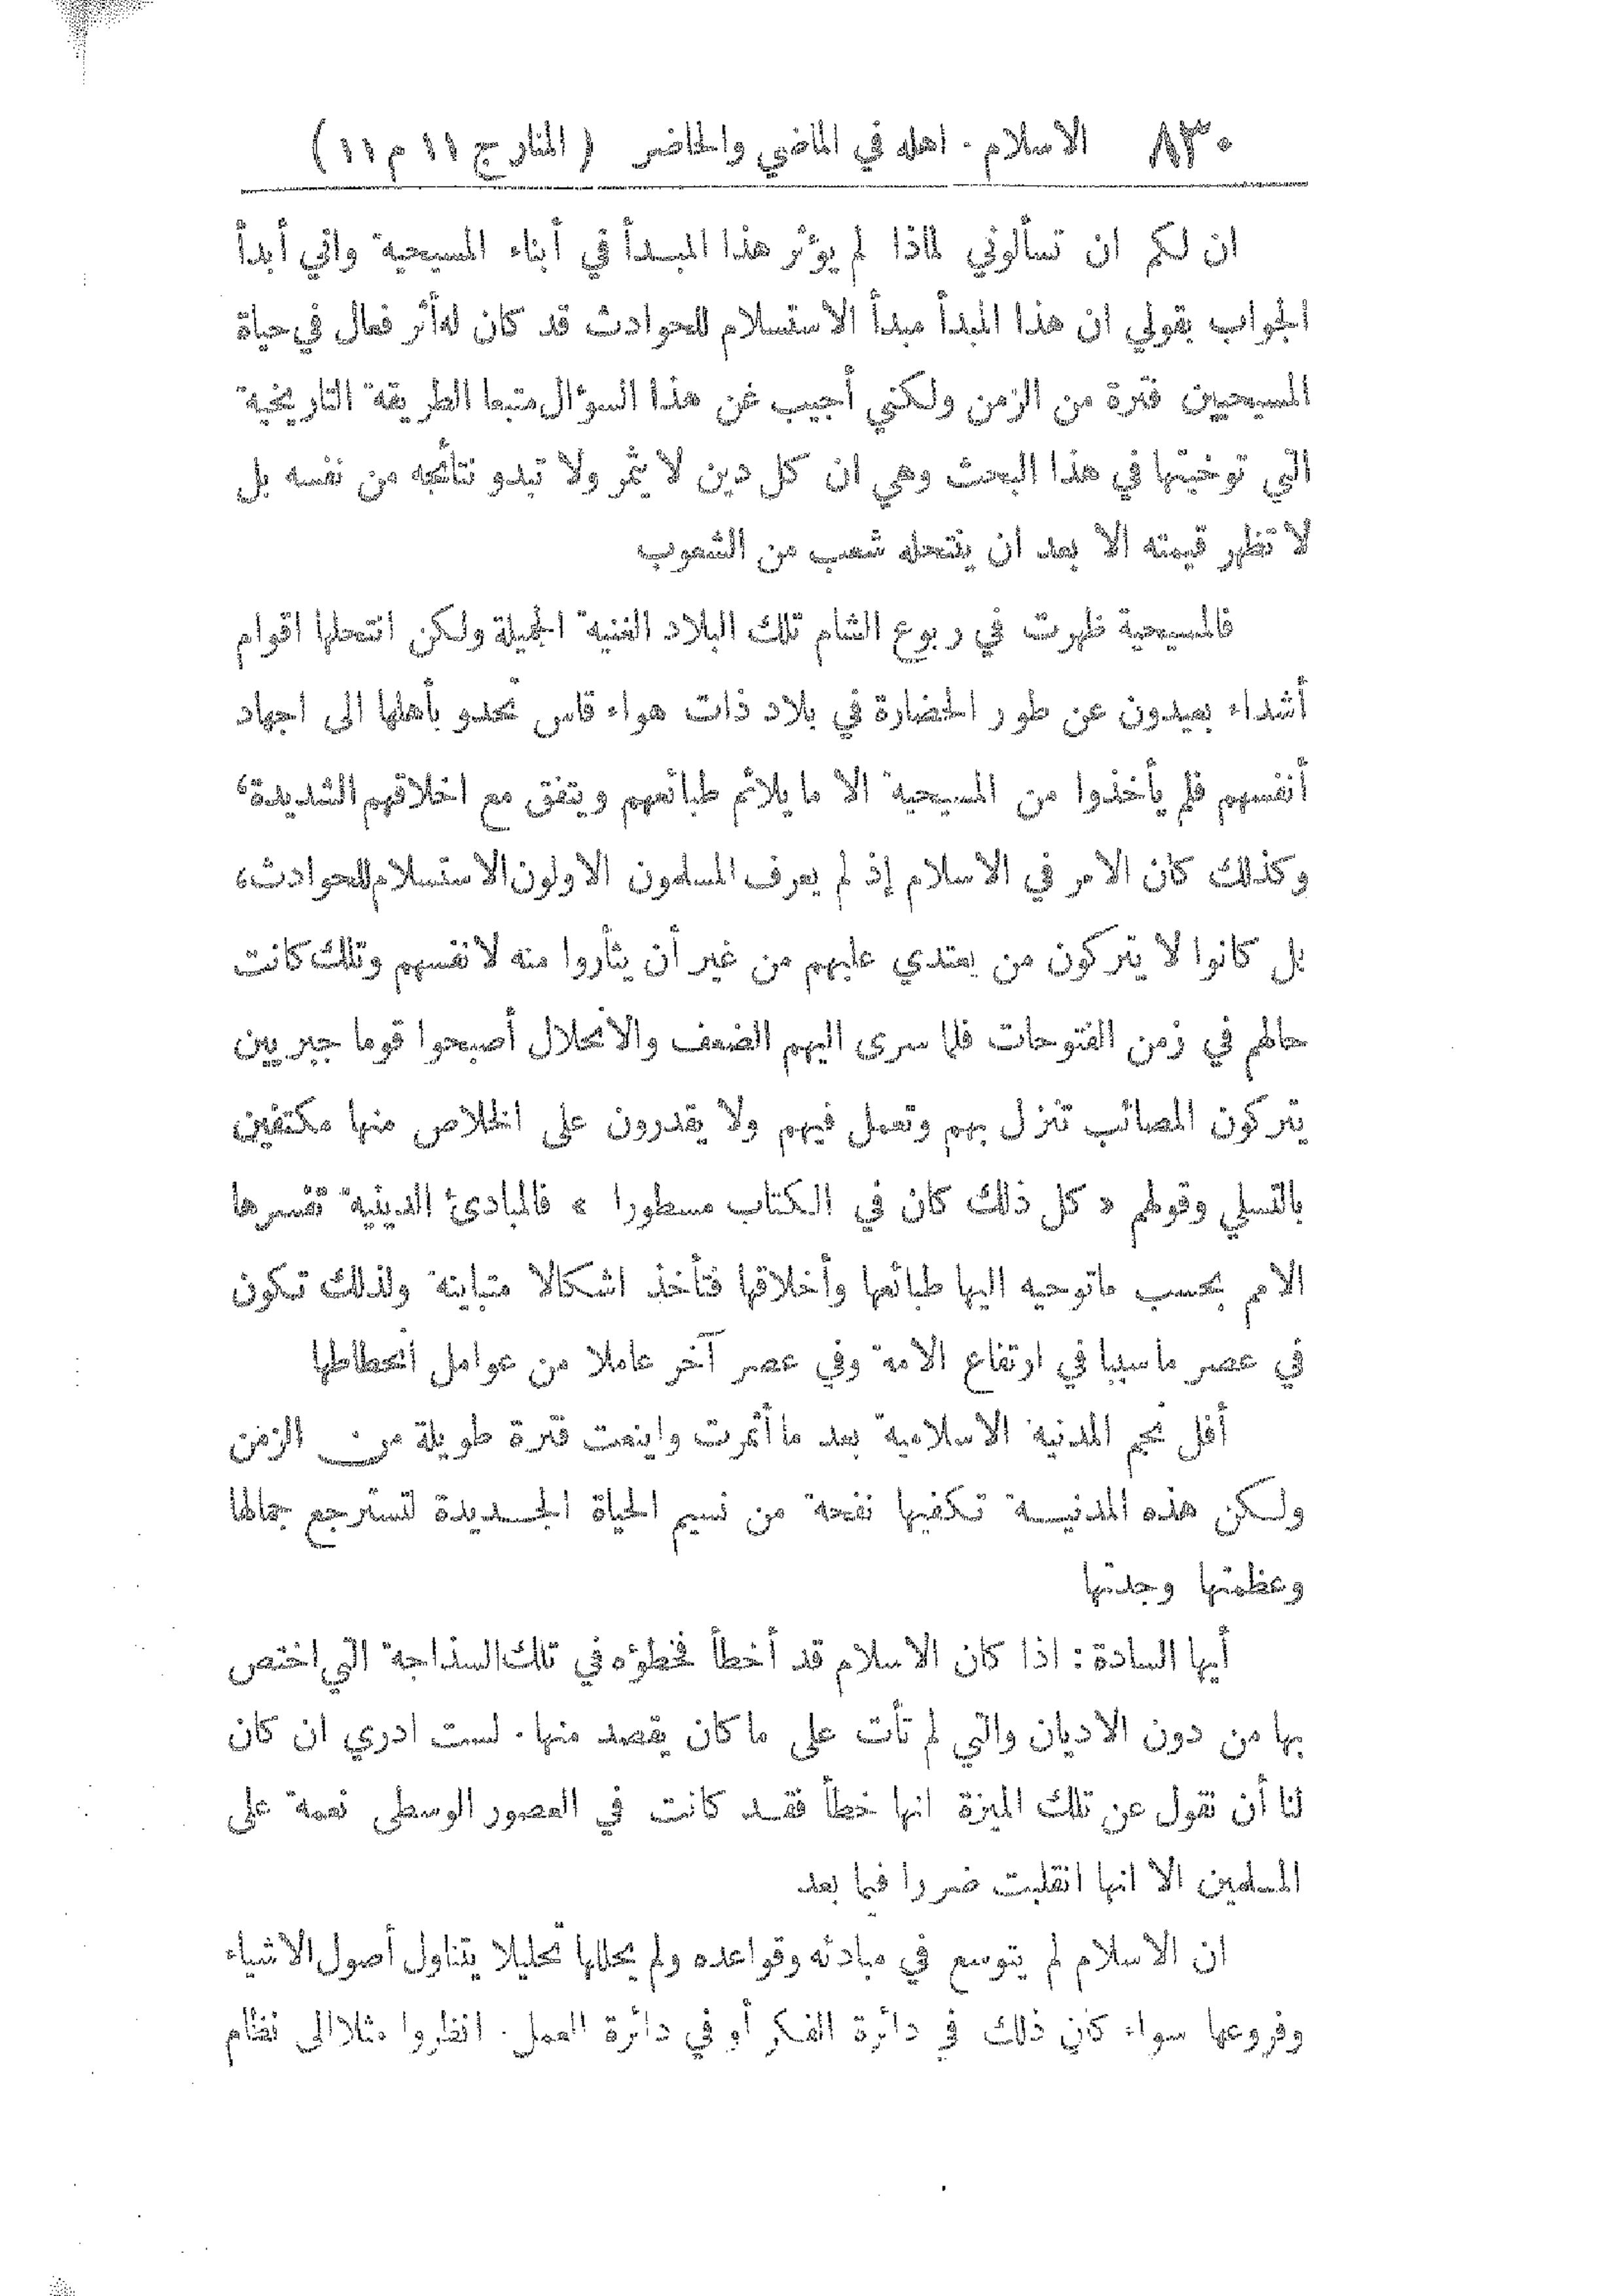 ٨٣٠ الاسلام . اهله في الماضي والحاضر ( المنار ج ١١ م ١١ )
ان لكم ان تسألوني لماذا لم يؤثر هذا المبدأ في أبناء المسيحية واني أبدأ
الجواب بقولي ان هذا المبدأ مبدأ الاستسلام للحوادث قد كان له أثر فعال في حياة
المسيحيين فترة من الزمن ولكني أجيب عن هذا السؤال متبعا الطريقة التاريخية
التي توخيتها في هذا البحث وهي ان كل دين لا يثمر ولا تبدو نتائجه من نفسه بل
لا تظهر قيمته الا بعد ان ينتحله شعب من الشعوب
فالمسيحية ظهرت في ربوع الشام تلك البلاد الغنية الجميلة ولكن انتحلها اقوام
أشداء بعيدون عن طور الحضارة في بلاد ذات هواء قاس تحدو بأهلها الى اجهاد
أنفسهم فلم يأخذوا من المسيحية الا ما يلائم طبائعهم ويتفق مع اخلاقهم الشديدة،
وكذلك كان الامر في الاسلام إذ لم يعرف المسلمون الاولون الاستسلام للحوادث،
بل كانوا لا يتركون من يعتدي عليهم من غير أن يثأروا منه لانفسهم وتلك كانت
حالهم في زمن الفتوحات فلما سرى اليهم الضعف والانحلال أصبحوا قوما جبريين
يتركون المصائب تنزل بهم وتعمل فيهم ولا يقدرون على الخلاص منها مكتفين
بالتسلي وقولهم « كل ذلك كان في الكتاب مسطورا » فالمبادئ الدينية تفسرها
الامم بحسب ماتوحيه اليها طبائعها وأخلاقها فتأخذ اشكالا متباينة ولذلك تكون
في عصر ما سببا في ارتفاع الامة وفي عصر آخر عاملا من عوامل انحطاطها
أفل نجم المدنية الاسلامية بعد ما أثمرت واينعت فترة طويلة من الزمن
ولكن هذه المدنية تكفيها نفحة من نسيم الحياة الجديدة لتسترجع جمالها
وعظمتها وجدتها
أيها السادة : اذا كان الاسلام قد أخطأ فخطؤه في تلك السذاجة التي اختص
بها من دون الاديان والتي لم تأت على ما كان يقصد منها . لست ادري ان كان
لنا أن نقول عن تلك الميزة انها خطأ فقد كانت في العصور الوسطى نعمة على
المسلمين الا انها انقلبت ضررا فيما بعد
ان الاسلام لم يتوسع في مبادئه وقواعده ولم يحللها تحليلا يتناول أصول الاشياء
وفروعها سواء كان ذلك في دائرة الفكر أو في دائرة العمل . انظروا مثلا الى نظام